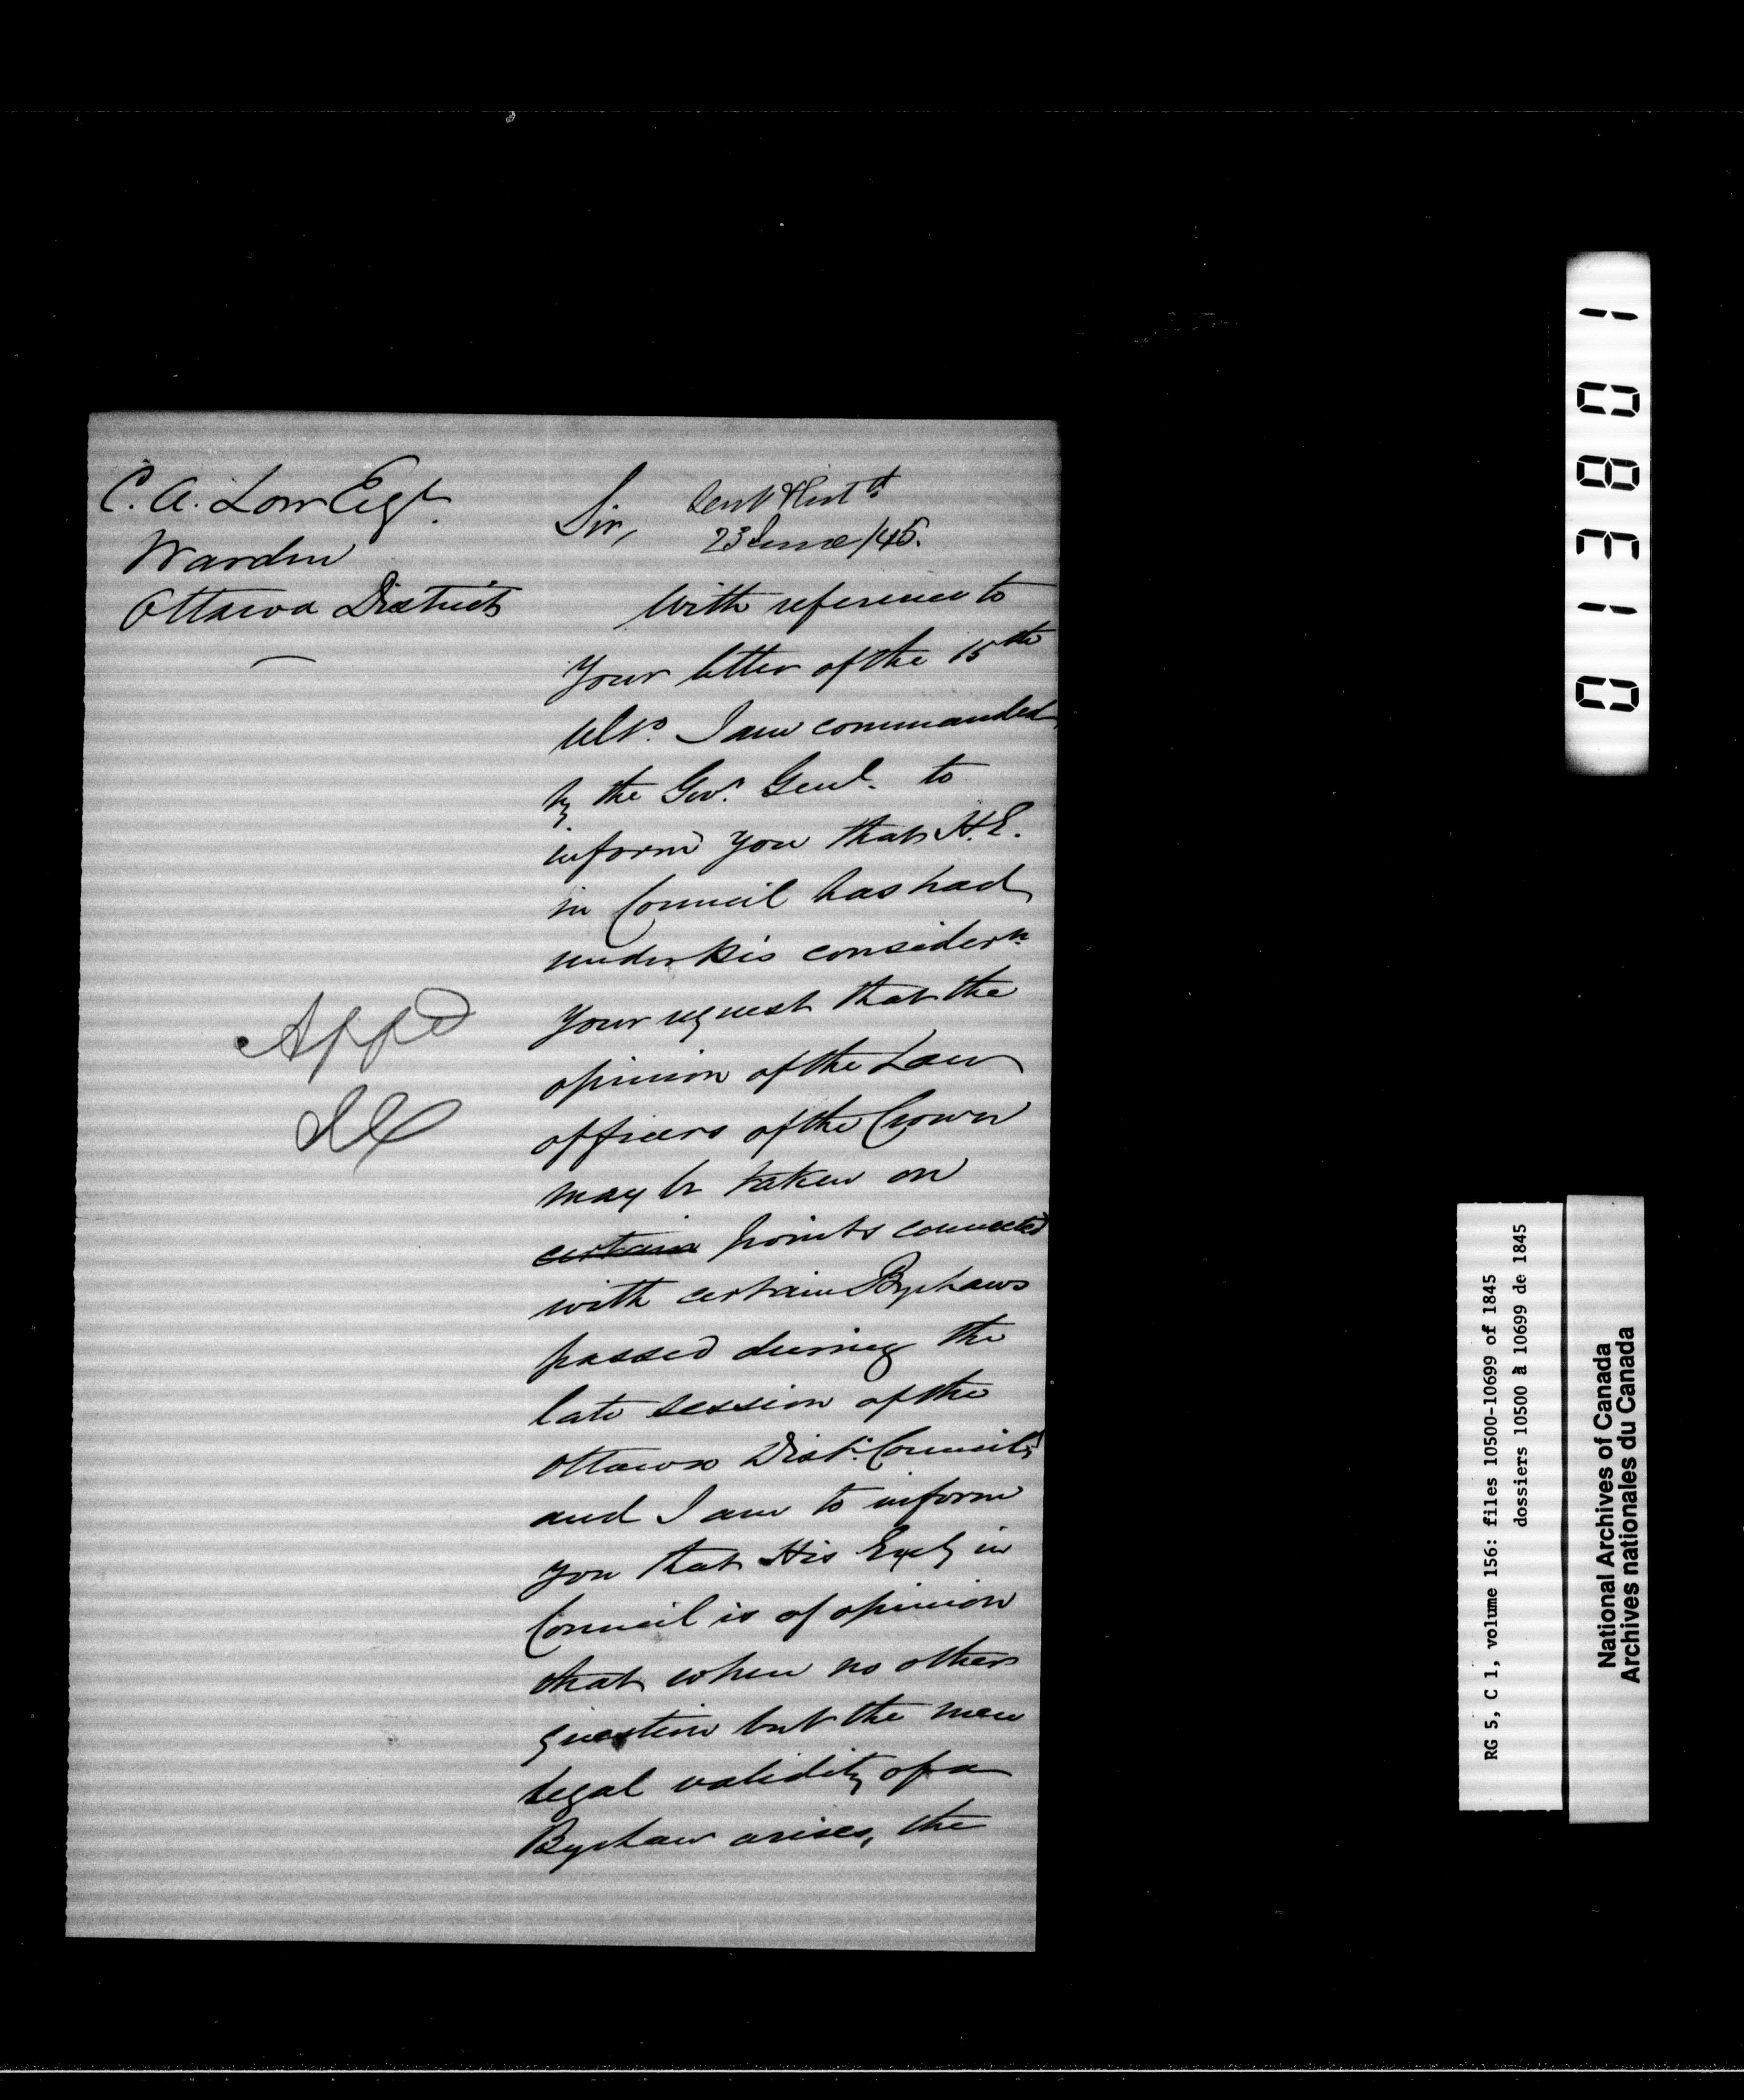 C. A. Low Esqr.
Warden
Ottawa District
Appd
Sir,
23 June /45.
With reference to
your letter of the 15th
ulto. I am commanded
by the Govr. Genl. to
inform you that H.E.
in Council has had
under his considern.
your request that the
opinion of the Law
officers of the Crown
may be taken on
certain points connected
with certain By Laws
passed during the
late session of the
Ottawa Dist. Council,
and I am to inform
you that His Excly in
Council is of opinion
that when no other
question but the mere
legal validity of a
By Law arises, the
013801
RG 5, C 1, volume 156: files 10500-10699 of 1845
dossiers 10500 à 10699 de 1845
National Archives of Canada
Archives nationales du Canada